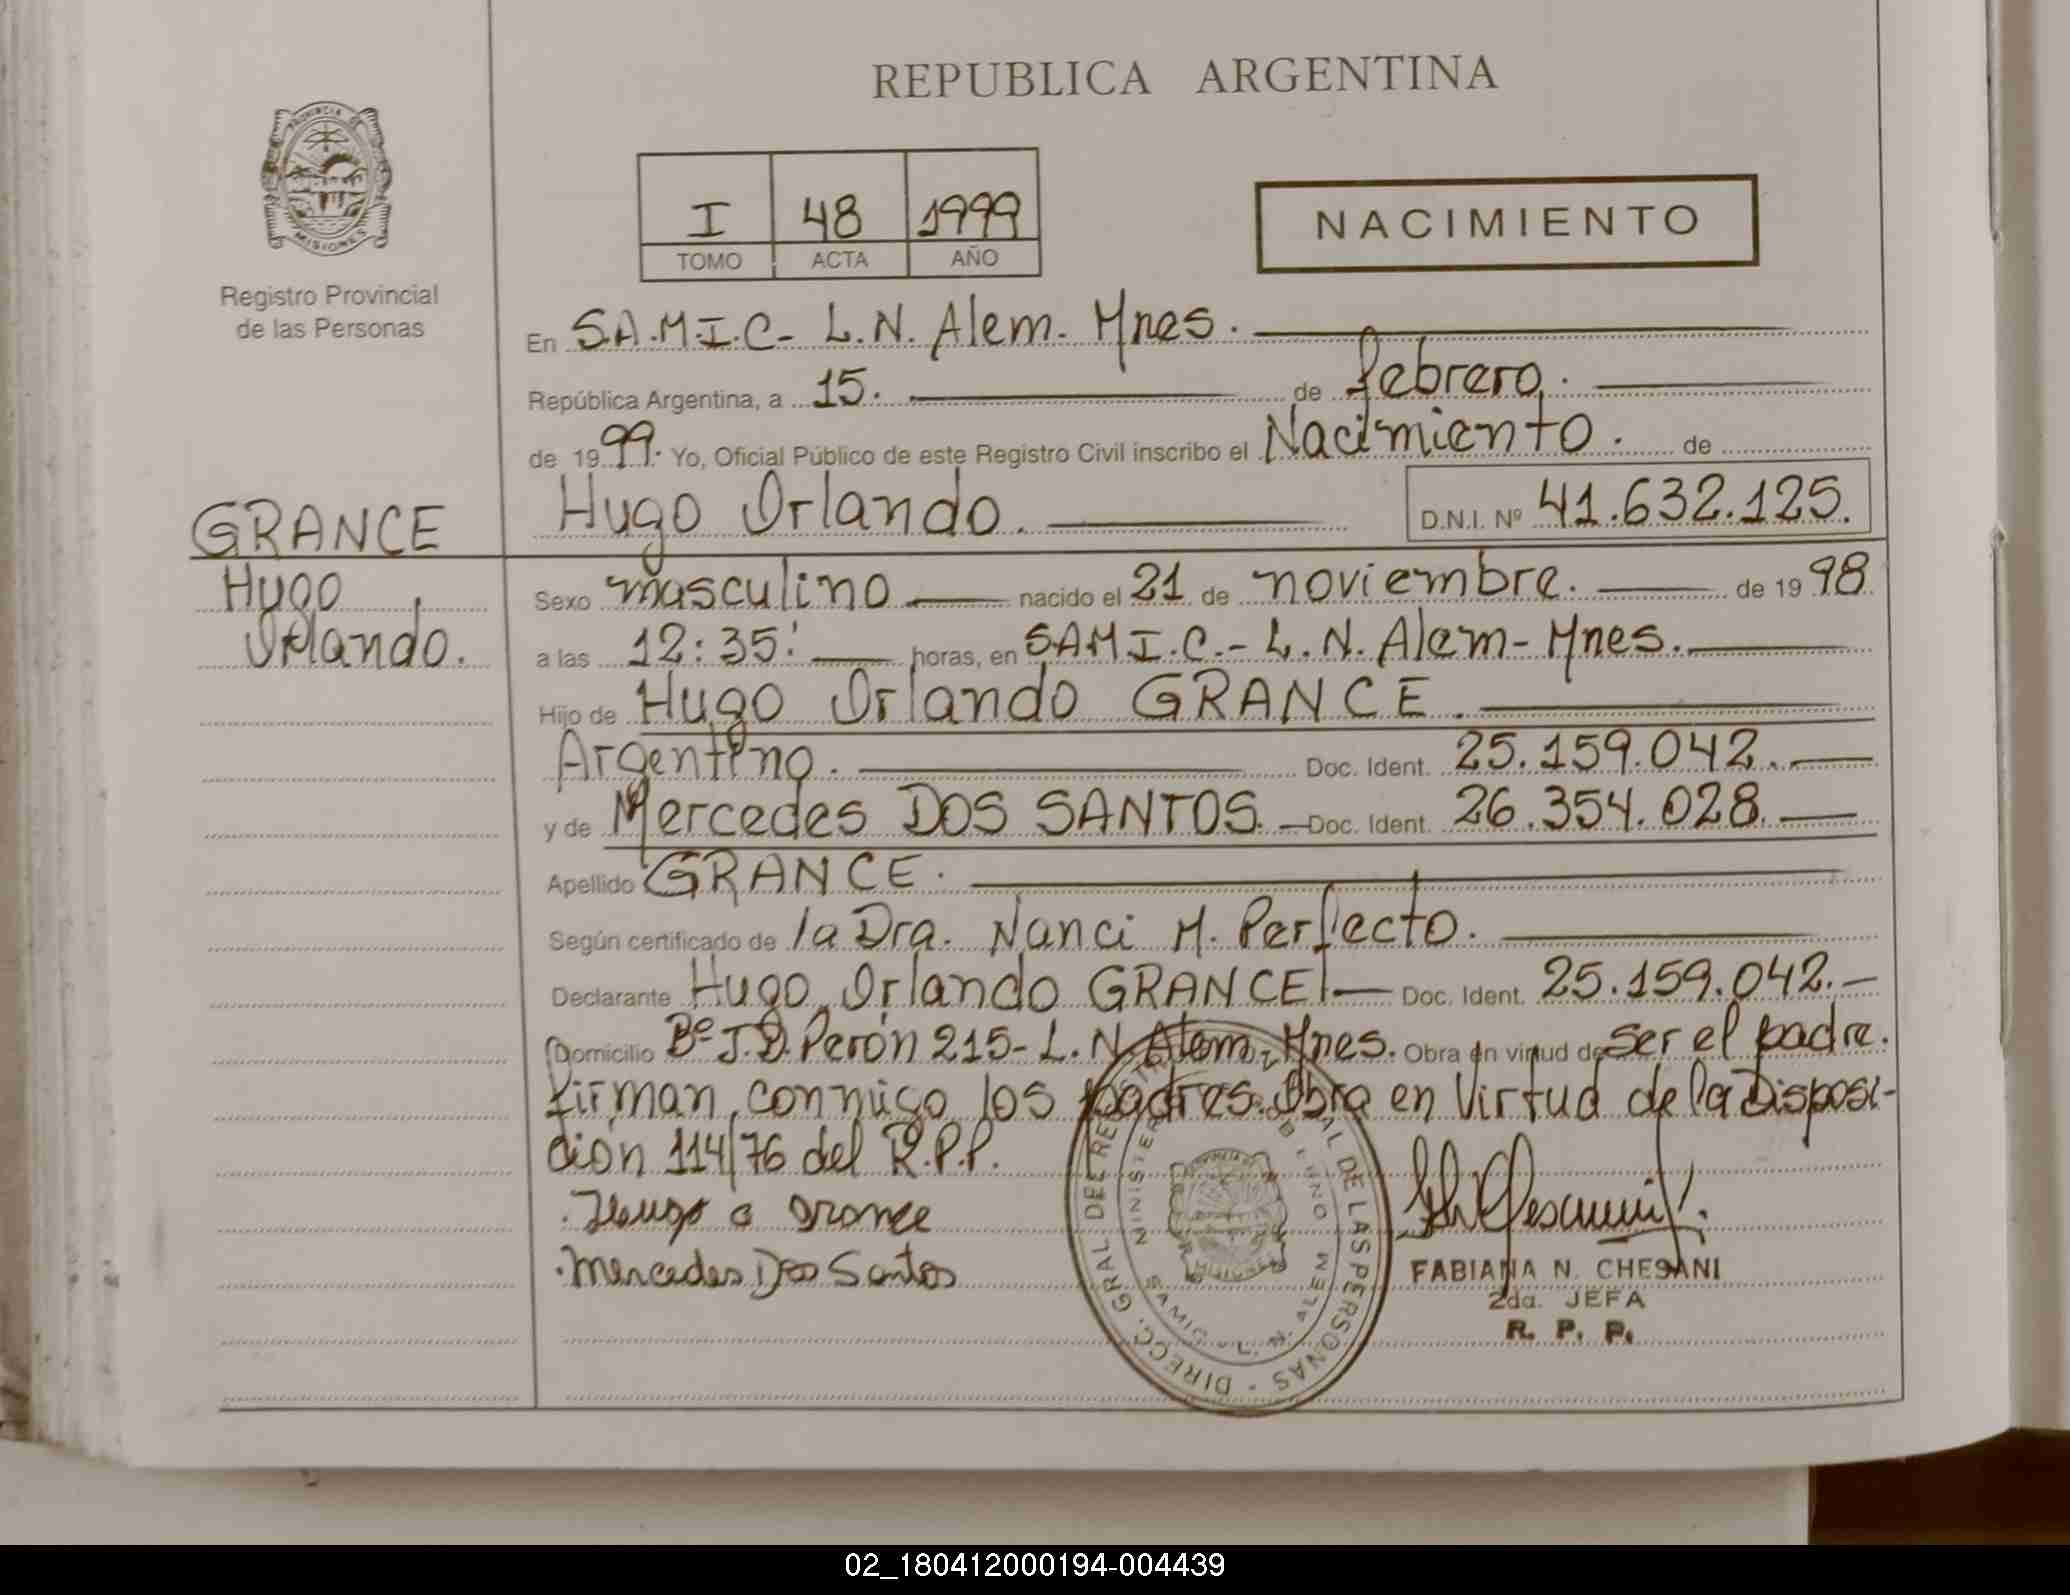 REPUBLICA ARGENTINA
PROVINCIA DE
MISIONES
Registro Provincial
de las Personas
I 48 1999
TOMO ACTA AÑO
NACIMIENTO
En S.A.M.I.C- L.N. Alem- Mnes.
República Argentina, a 15. de febrero.
de 1999. Yo, Oficial Público de este Registro Civil inscribo el Nacimiento. de
Hugo Orlando. D.N.I. Nº 41.632.125.
GRANCE
Hugo
Orlando.
Sexo masculino nacido el 21 de noviembre. de 1998
a las 12:35' horas, en S.A.M.I.C.- L.N. Alem- Mnes.
Hijo de Hugo Orlando GRANCE.
Argentino. Doc. Ident. 25.159.042.
y de Mercedes DOS SANTOS. Doc. Ident. 26.354.028.
Apellido GRANCE.
Según certificado de la Dra. Nanci M. Perfecto.
Declarante Hugo Orlando GRANCE Doc. Ident. 25.159.042.-
Domicilio Bº J.D. Perón 215- L.N. Alem- Mnes. Obra en virtud de ser el padre.
firman conmigo los padres. Obra en Virtud de la Disposi-
ción 114/76 del R.P.P.
Hugo O Grance
Mercedes Dos Santos
DIRECC. GRAL. DEL REG. DE LAS PERSONAS
SAMIC - L. N. ALEM
FABIANA N. CHESANI
2da. JEFA
R. P. P.
02_180412000194-004439